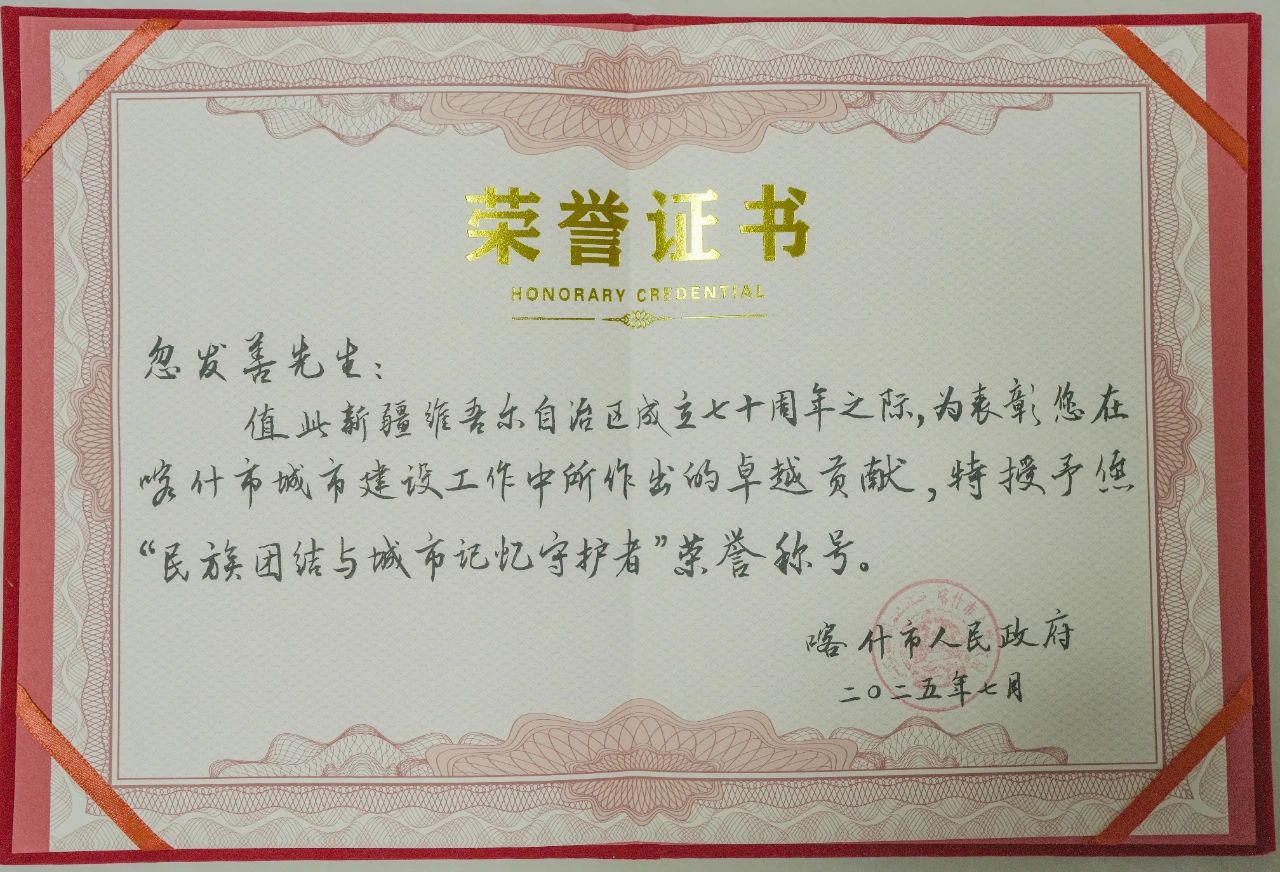 荣誉证书
HONORARY CREDENTIAL
忽发善先生：
值此新疆维吾尔自治区成立七十周年之际，为表彰您在
喀什市城市建设工作中所作出的卓越贡献，特授予您
“民族团结与城市记忆守护者”荣誉称号。
喀什市人民政府
二〇二五年七月